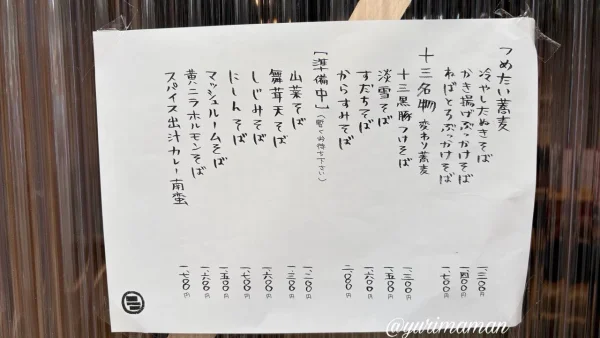 つめたい蕎麦
冷やしたぬきそば 一.三〇〇円
かき揚げぶっかけそば 一.四〇〇円
ねばとろぶっかけそば 一.七〇〇円
十三名物 変わり蕎麦
十三黒豚つけそば 一.三〇〇円
淡雪そば 一.五〇〇円
すだちそば 一.六〇〇円
からすみそば 二.〇〇〇円
[準備中] (暫くお待ち下さい)
山菜そば 一.二〇〇円
舞茸天そば 一.三〇〇円
しじみそば 一.六〇〇円
にしんそば 一.七〇〇円
マッシュルームそば 一.五〇〇円
黄ニラホルモンそば 一.六〇〇円
スパイス出汁カレー南蛮 一.七〇〇円
@yurimaman